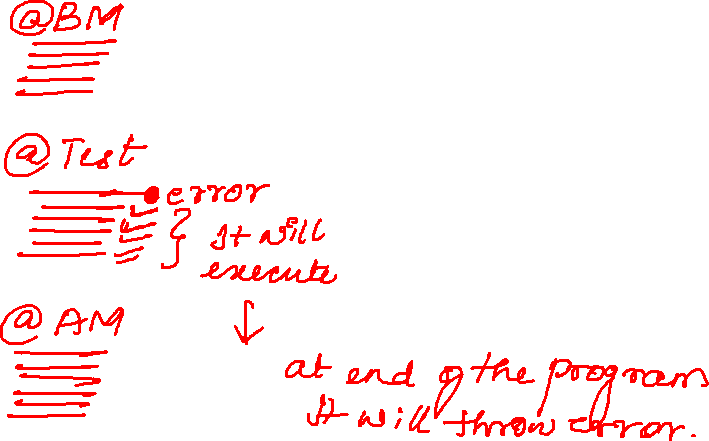 @BM
@Test
error
It will
execute
@AM
at end of the program
It will throw error.